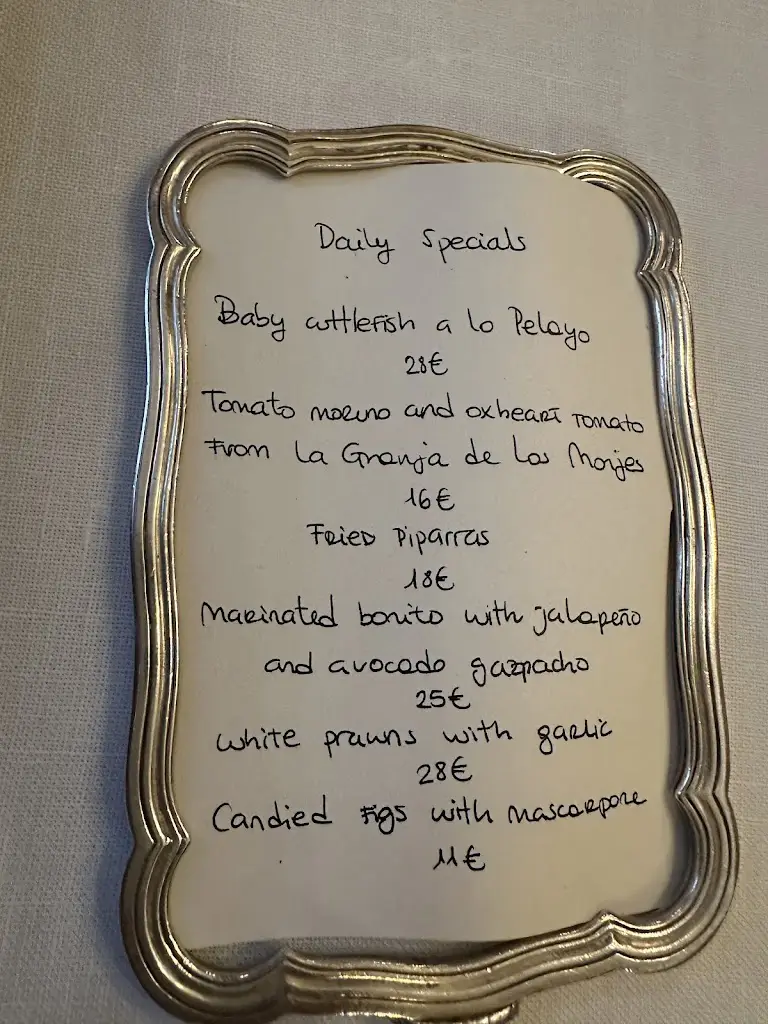 Daily Specials
Baby cuttlefish a lo Pelayo
28€
Tomato moruno and oxheart tomato
from La Granja de Los Monjes
16€
Fried Piparras
18€
Marinated bonito with jalapeño
and avocado gazpacho
25€
White prawns with garlic
28€
Candied figs with mascarpone
11€